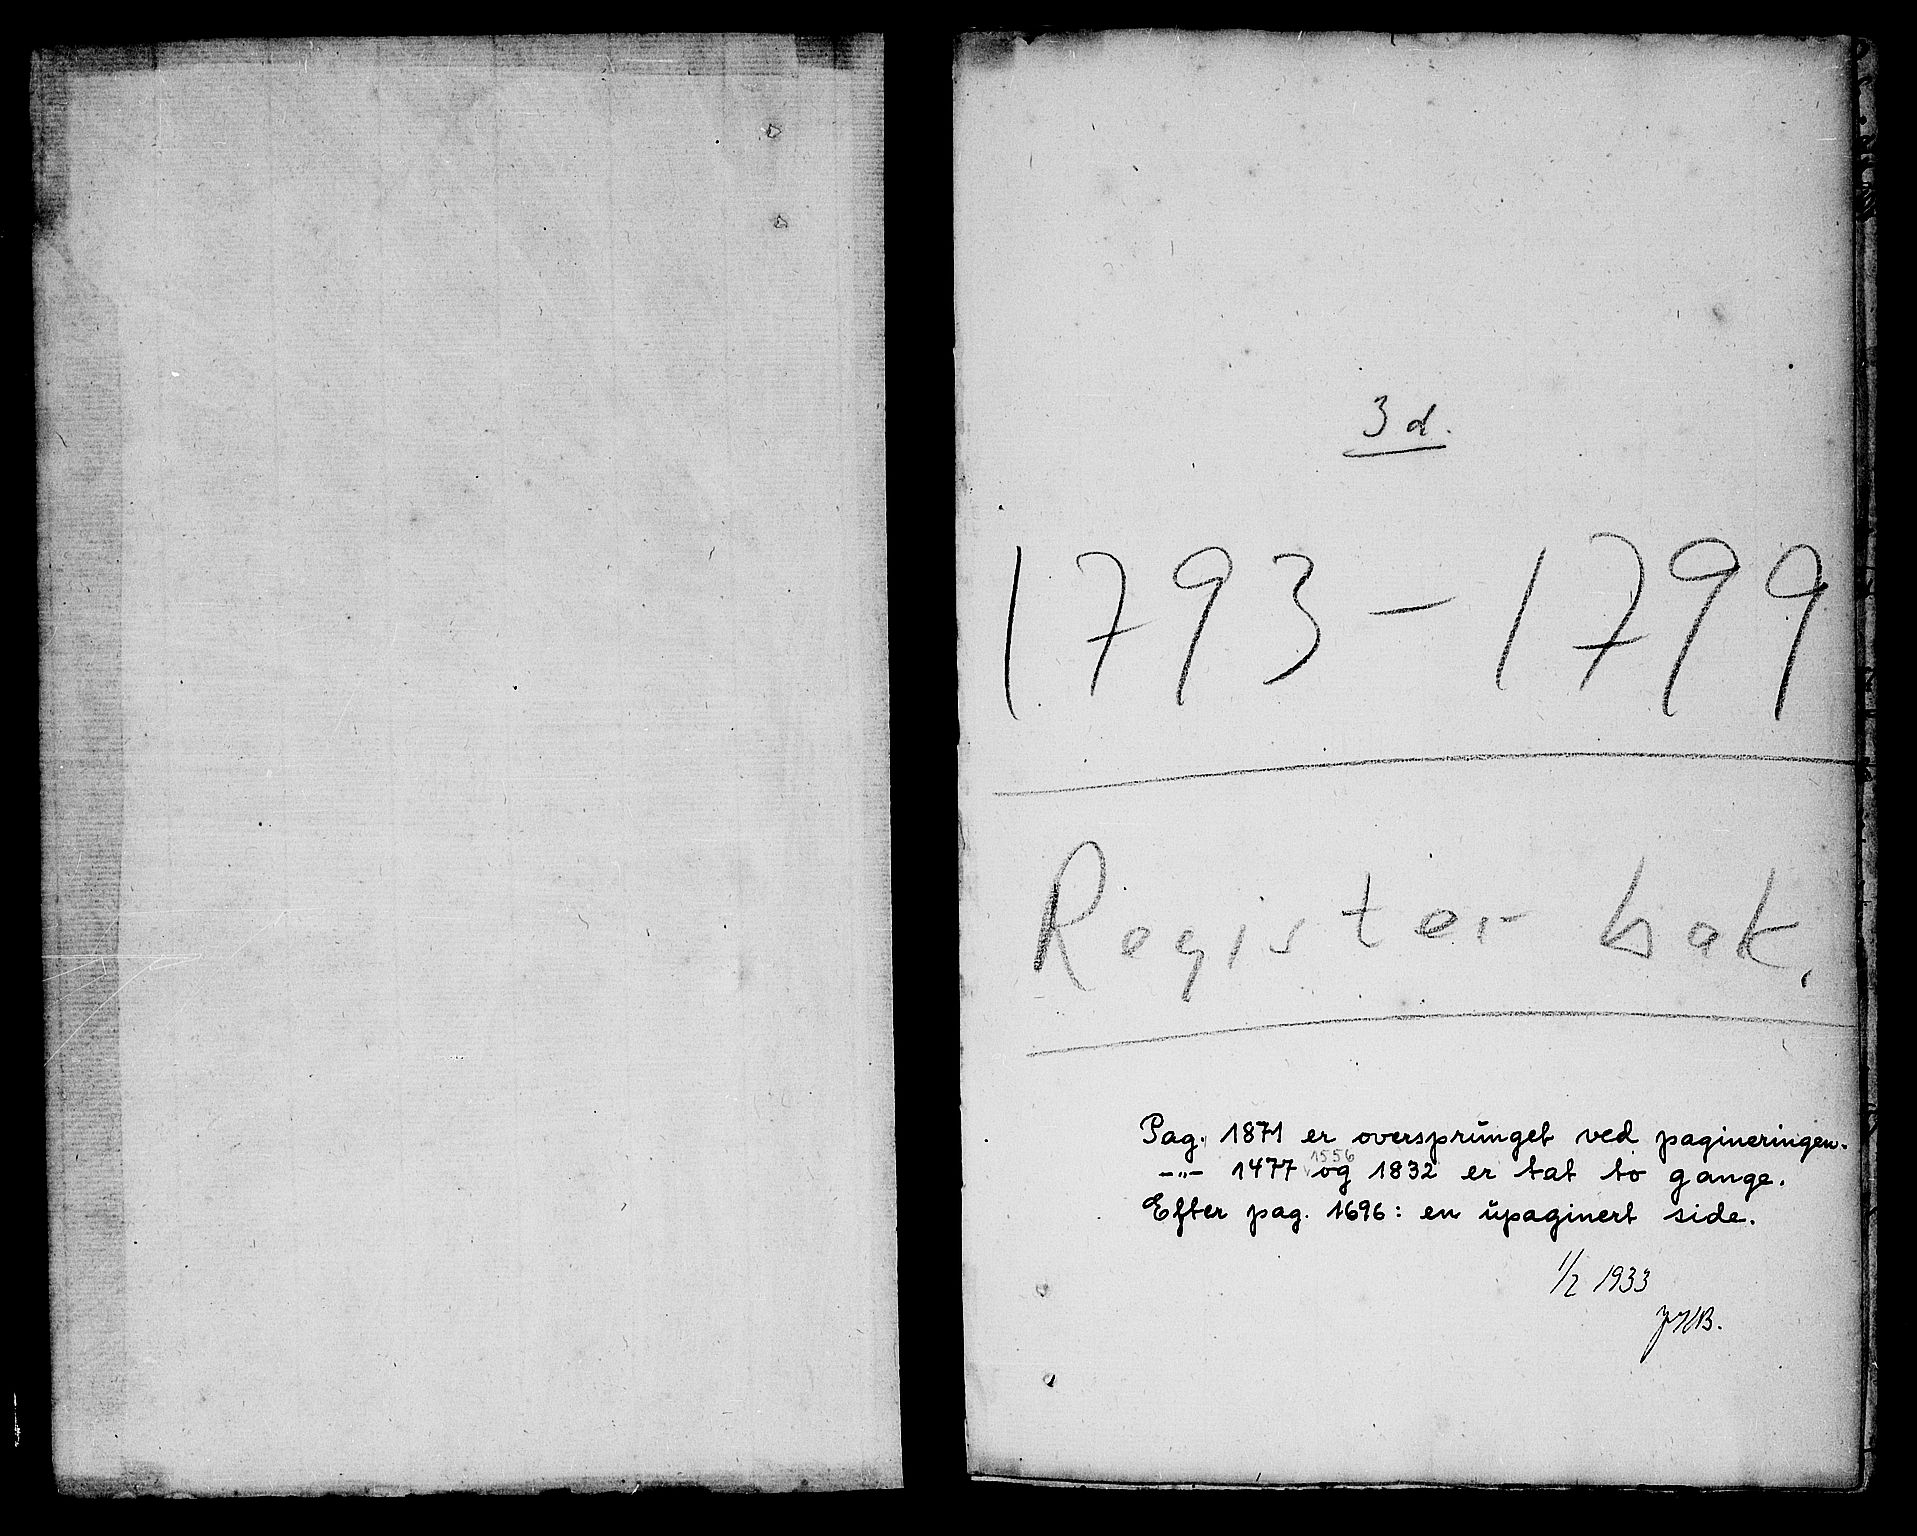 3 d.
1793 – 1799
Register bak.
Pag. 1871 er oversprunget ved pagineringen.
–„– 1477 1556 og 1832 er tat to gange.
Efter pag. 1696: en upaginert side.
1/2 1933